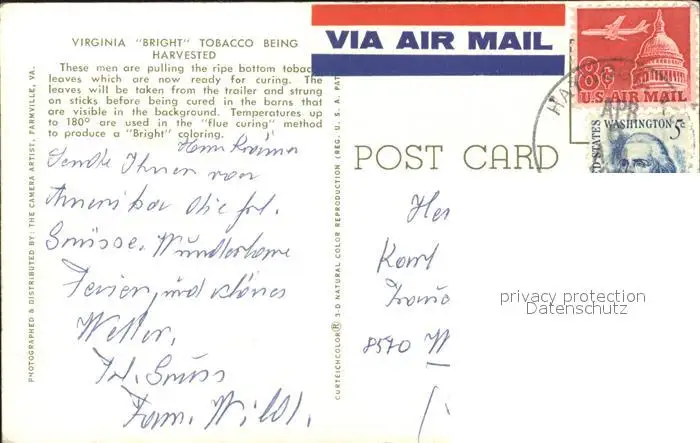 VIRGINIA "BRIGHT" TOBACCO BEING
HARVESTED
These men are pulling the ripe bottom tobac
leaves which are now ready for curing. The
leaves will be taken from the trailer and strung
on sticks before being cured in the barns that
are visible in the background. Temperatures up
to 180° are used in the "flue curing" method
to produce a "Bright" coloring.
Sende Ihnen von
Amerika die frl.
Grüsse. Wunderbare
Ferien, und schönes
Wetter.
Frl. Gruss
Fam. Wildi.
PHOTOGRAPHED & DISTRIBUTED BY: THE CAMERA ARTIST, FARMVILLE, VA.
CURTEICHCOLOR® 3-D NATURAL COLOR REPRODUCTION (REG. U. S. A. PAT
VIA AIR MAIL
8c
U.S. AIR MAIL
WASHINGTON 5c
APR
POST CARD
8570 W
privacy protection
Datenschutz